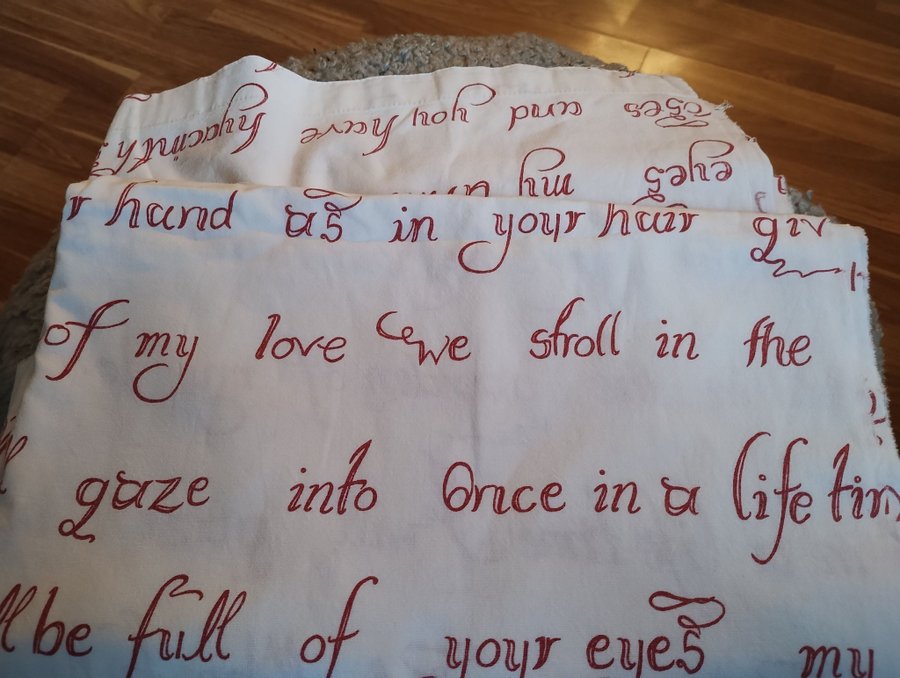 and you have hyacinth
eyes my
r hand as in your hair giv
of my love we stroll in the
gaze into Once in a life tim
ll be full of your eyes my